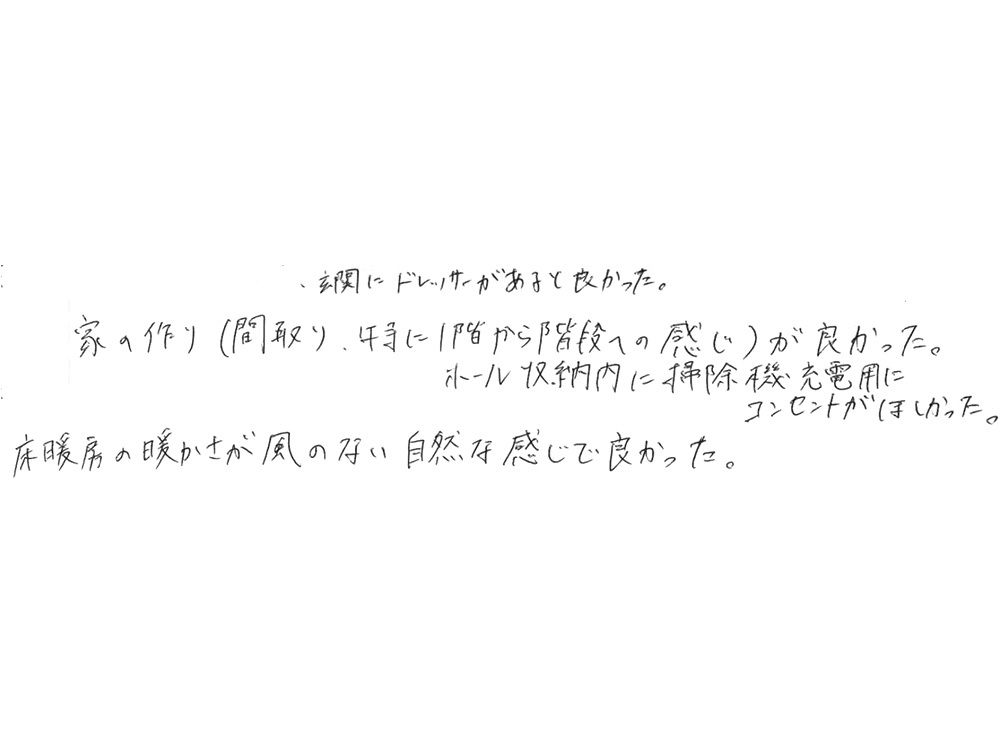 、玄関にドレッサーがあると良かった。
家の作り(間取り、特に1階から階段への感じ)が良かった。
ホール収納内に掃除機充電用に
コンセントがほしかった。
床暖房の暖かさが風のない自然な感じで良かった。